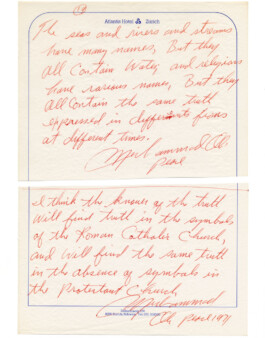 Atlantis Hotel Zürich
The seas and rivers and streams
have many names, But they
All Contain Water, and religions
have various names, But they
All Contain the same truth
expressed in different forms
at different times.
Muhammad Ali
peace
I think the knower of the truth
Will find truth in the symbols
of the Roman Catholic Church,
and Will find the same truth
in the absence of symbols in
the Protestant Church
Muhammad
Ali peace 1971